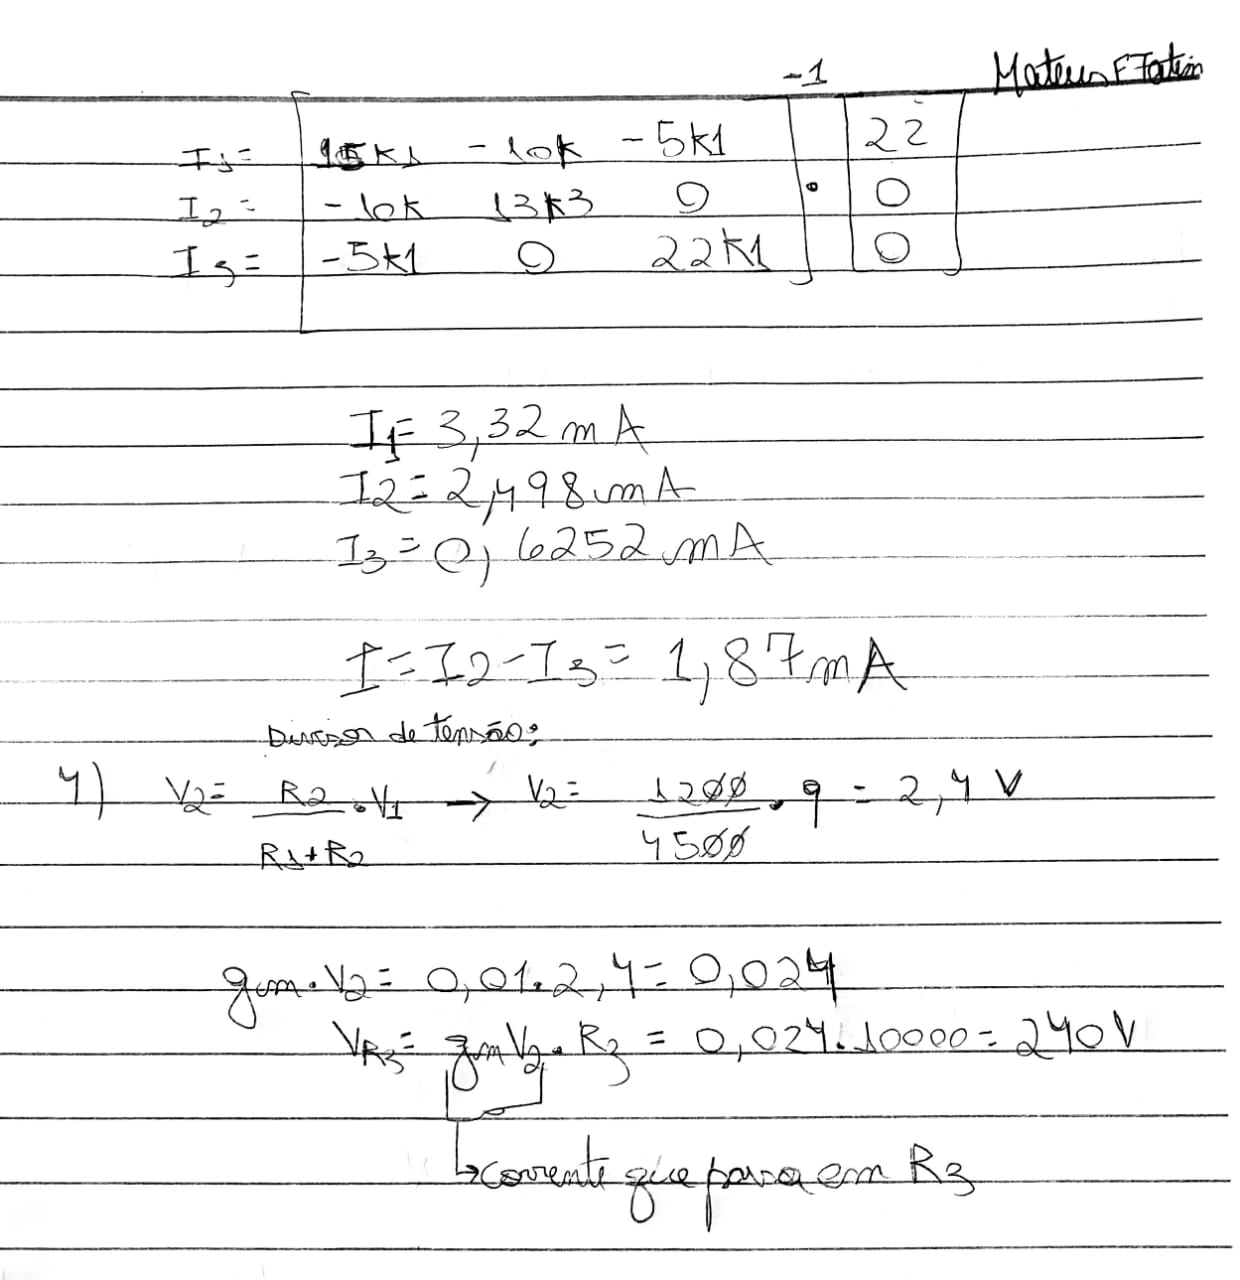 Mateus F Tatin
-1
I1= 15k1 -10k -5k1 22
I2= -10k 13k3 0 . 0
I3= -5k1 0 22k1 0
I1= 3,32 mA
I2= 2,498 mA
I3= 0,6252 mA
I=I2-I3= 1,87mA
Divisor de tensão:
4) V2= R2 . V1 → V2= 1200 . 9 = 2,4 V
R1+R2 4500
gm.V2= 0,01.2,4= 0,024
VR3= gmV2.R3 = 0,024.10000= 240V
↳corrente que passa em R3